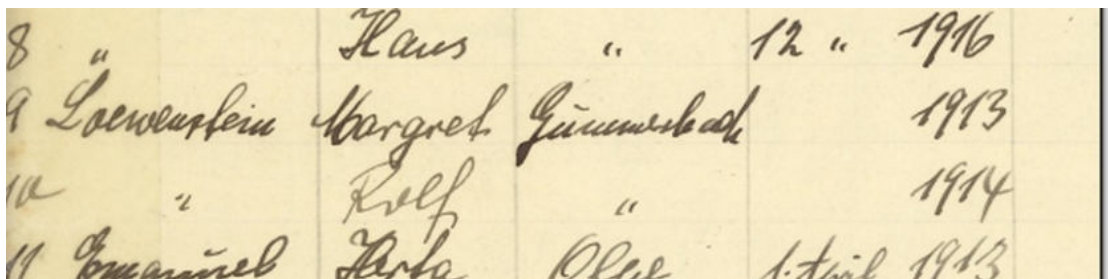 8 " Hans " 12 " 1916
9 Loewenstein Margret Gummersbach 1913
10 " Rolf " 1914
11 Emanuel Herta Olpe 1. April 1913